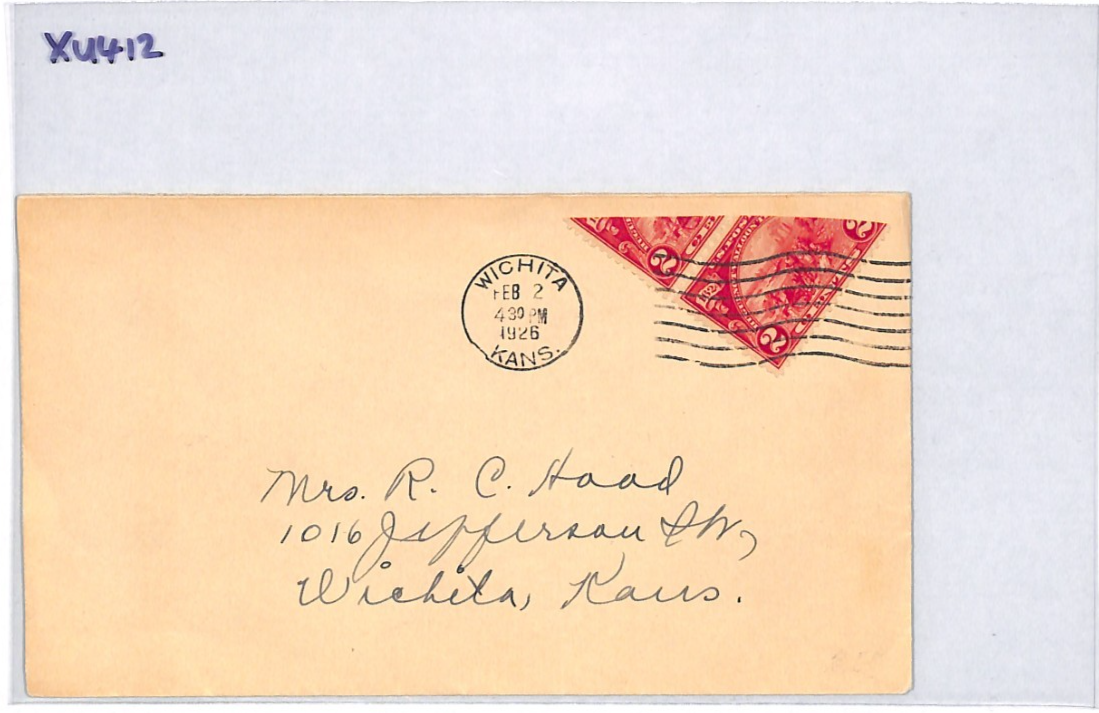 XU412
WICHITA
FEB 2
430 PM
1926
KANS.
2
2
2
Mrs. R. C. Hood
1016 Jefferson
Wichita, Kans.